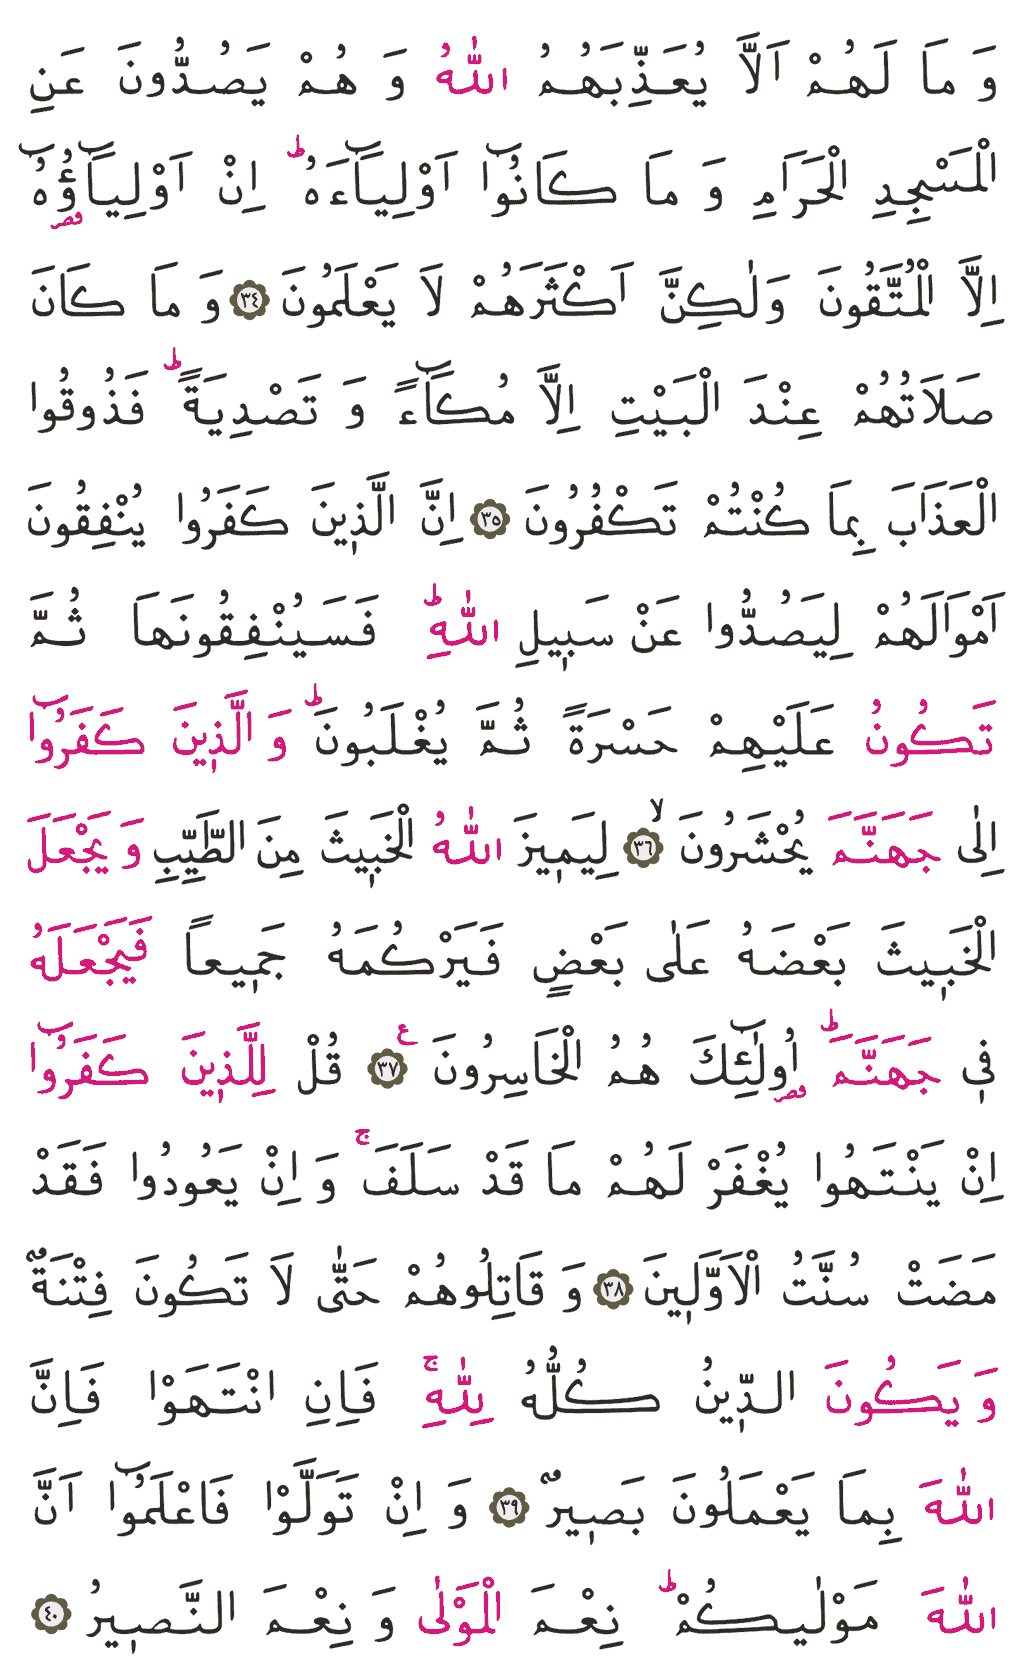 وَ مَا لَهُمْ اَلَّا يُعَذِّبَهُمُ اللّٰهُ وَ هُمْ يَصُدُّونَ عَنِ
الْمَسْجِدِ الْحَرَامِ وَ مَا كَانُٓوا اَوْلِيَٓاءَهُ ؕ اِنْ اَوْلِيَٓاؤُ۬هُٓ
اِلَّا الْمُتَّقُونَ وَلٰكِنَّ اَكْثَرَهُمْ لَا يَعْلَمُونَ ﴿٣٤﴾ وَ مَا كَانَ
صَلَاتُهُمْ عِنْدَ الْبَيْتِ اِلَّا مُكَٓاءً وَ تَصْدِيَةً ؕ فَذُوقُوا
الْعَذَابَ بِمَا كُنْتُمْ تَكْفُرُونَ ﴿٣٥﴾ اِنَّ الَّذ۪ينَ كَفَرُوا يُنْفِقُونَ
اَمْوَالَهُمْ لِيَصُدُّوا عَنْ سَب۪يلِ اللّٰهِ ؕ فَسَيُنْفِقُونَهَا ثُمَّ
تَكُونُ عَلَيْهِمْ حَسْرَةً ثُمَّ يُغْلَبُونَ ؕ وَ الَّذ۪ينَ كَفَرُٓوا
اِلٰى جَهَنَّمَ يُحْشَرُونَ ۙ ﴿٣٦﴾ لِيَم۪يزَ اللّٰهُ الْخَب۪يثَ مِنَ الطَّيِّبِ وَ يَجْعَلَ
الْخَب۪يثَ بَعْضَهُ عَلٰى بَعْضٍ فَيَرْكُمَهُ جَم۪يعاً فَيَجْعَلَهُ
ف۪ي جَهَنَّمَ ؕ اُو۬لٰٓئِكَ هُمُ الْخَاسِرُونَ ﴿٣٧﴾ ع قُلْ لِلَّذ۪ينَ كَفَرُٓوا
اِنْ يَنْتَهُوا يُغْفَرْ لَهُمْ مَا قَدْ سَلَفَ ۚ وَ اِنْ يَعُودُوا فَقَدْ
مَضَتْ سُنَّتُ الْاَوَّل۪ينَ ﴿٣٨﴾ وَ قَاتِلُوهُمْ حَتّٰى لَا تَكُونَ فِتْنَةٌ
وَ يَكُونَ الدّ۪ينُ كُلُّهُ لِلّٰهِ ۚ فَاِنِ انْتَهَوْا فَاِنَّ
اللّٰهَ بِمَا يَعْمَلُونَ بَص۪يرٌ ﴿٣٩﴾ وَ اِنْ تَوَلَّوْا فَاعْلَمُٓوا اَنَّ
اللّٰهَ مَوْلٰيكُمْ ؕ نِعْمَ الْمَوْلٰى وَ نِعْمَ النَّص۪يرُ ﴿٤٠﴾